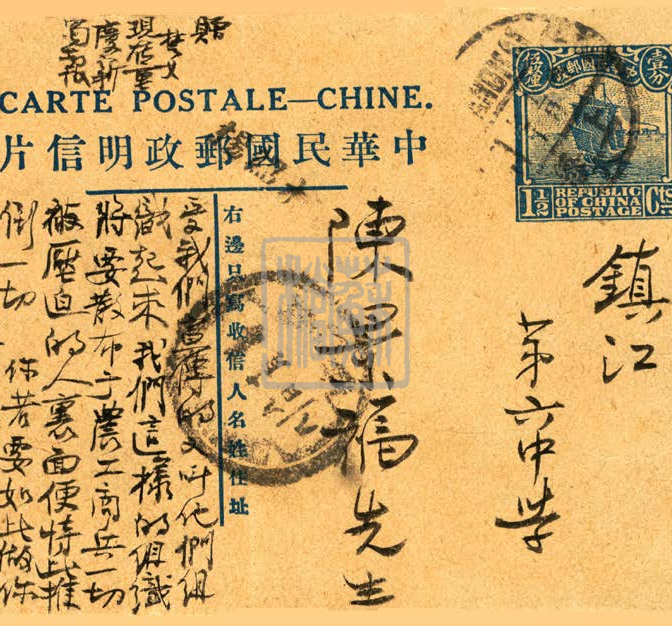 CARTE POSTALE—CHINE.
中華民國郵政明信片
右邊只寫收信人名姓住址
中華民國郵政
壹分
1½ REPUBLIC OF CHINA POSTAGE Cts
鎮江
第六中学
陳景福先生
受我們宣傳的又叫他們組
織起来我們這樣的組織
將要散布于農工商兵一切
被壓迫的人裏面便恃此推
倒一切.你若要如此做你